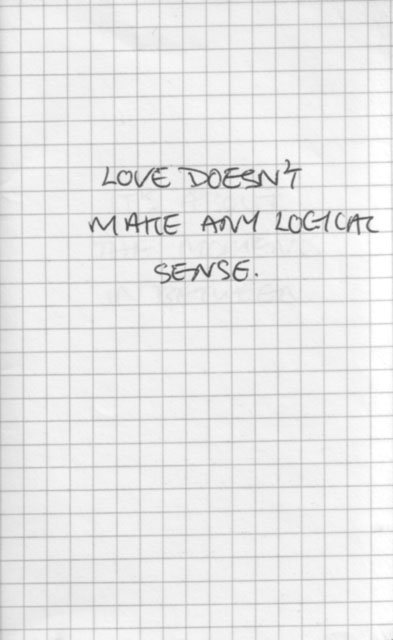 LOVE DOESN'T
MAKE ANY LOGICAL
SENSE.